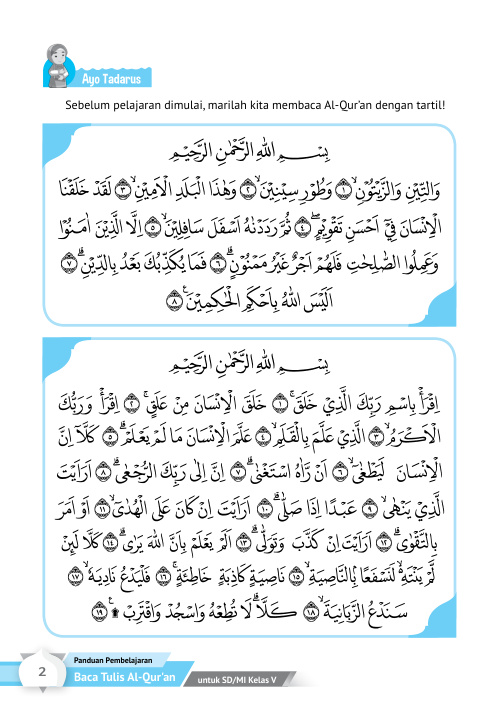 Ayo Tadarus
Sebelum pelajaran dimulai, marilah kita membaca Al-Qur'an dengan tartil!
بِسْــــمِ اللّٰهِ الرَّحْمٰنِ الرَّحِيْمِ
وَالتِّيْنِ وَالزَّيْتُوْنِۙ ۝١ وَطُوْرِ سِيْنِيْنَۙ ۝٢ وَهٰذَا الْبَلَدِ الْاَمِيْنِۙ ۝٣ لَقَدْ خَلَقْنَا
الْاِنْسَانَ فِيْٓ اَحْسَنِ تَقْوِيْمٍۖ ۝٤ ثُمَّ رَدَدْنٰهُ اَسْفَلَ سَافِلِيْنَۙ ۝٥ اِلَّا الَّذِيْنَ اٰمَنُوْا
وَعَمِلُوا الصّٰلِحٰتِ فَلَهُمْ اَجْرٌ غَيْرُ مَمْنُوْنٍۗ ۝٦ فَمَا يُكَذِّبُكَ بَعْدُ بِالدِّيْنِۗ ۝٧
اَلَيْسَ اللّٰهُ بِاَحْكَمِ الْحٰكِمِيْنَࣖ ۝٨
بِسْــــمِ اللّٰهِ الرَّحْمٰنِ الرَّحِيْمِ
اِقْرَأْ بِاسْمِ رَبِّكَ الَّذِيْ خَلَقَۚ ۝١ خَلَقَ الْاِنْسَانَ مِنْ عَلَقٍۚ ۝٢ اِقْرَأْ وَرَبُّكَ
الْاَكْرَمُۙ ۝٣ الَّذِيْ عَلَّمَ بِالْقَلَمِۙ ۝٤ عَلَّمَ الْاِنْسَانَ مَا لَمْ يَعْلَمْۗ ۝٥ كَلَّآ اِنَّ
الْاِنْسَانَ لَيَطْغٰىٓۙ ۝٦ اَنْ رَّاٰهُ اسْتَغْنٰىۗ ۝٧ اِنَّ اِلٰى رَبِّكَ الرُّجْعٰىۗ ۝٨ اَرَاَيْتَ
الَّذِيْ يَنْهٰىۙ ۝٩ عَبْدًا اِذَا صَلّٰىۗ ۝١٠ اَرَاَيْتَ اِنْ كَانَ عَلَى الْهُدٰىٓۙ ۝١١ اَوْ اَمَرَ
بِالتَّقْوٰىۗ ۝١٢ اَرَاَيْتَ اِنْ كَذَّبَ وَتَوَلّٰىۗ ۝١٣ اَلَمْ يَعْلَمْ بِاَنَّ اللّٰهَ يَرٰىۗ ۝١٤ كَلَّا لَىِٕنْ
لَّمْ يَنْتَهِ ەۙ لَنَسْفَعًاۢ بِالنَّاصِيَةِۙ ۝١٥ نَاصِيَةٍ كَاذِبَةٍ خَاطِئَةٍۚ ۝١٦ فَلْيَدْعُ نَادِيَهٗۙ ۝١٧
سَنَدْعُ الزَّبَانِيَةَۙ ۝١٨ كَلَّاۗ لَا تُطِعْهُ وَاسْجُدْ وَاقْتَرِبْ ۩ࣖ ۝١٩
2
Panduan Pembelajaran
Baca Tulis Al-Qur'an
untuk SD/MI Kelas V